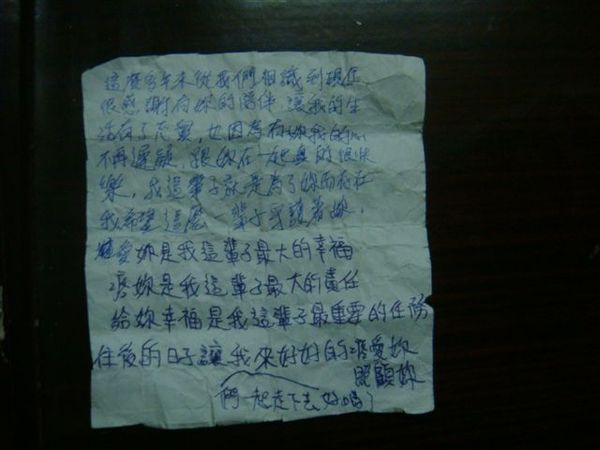 這麼多年來從我們相識到現在
很感謝有妳的陪伴,讓我的生
活有了充實,也因為有妳我的心
不再遲疑,跟妳在一起真的很快
樂,我這輩子就是為了妳而存在
我希望這麼一輩子守護著妳,
愛妳是我這輩子最大的幸福
疼妳是我這輩子最大的責任
給妳幸福是我這輩子最重要的任務
往後的日子讓我來好好的疼愛妳
照顧妳
們一起走下去好嗎?